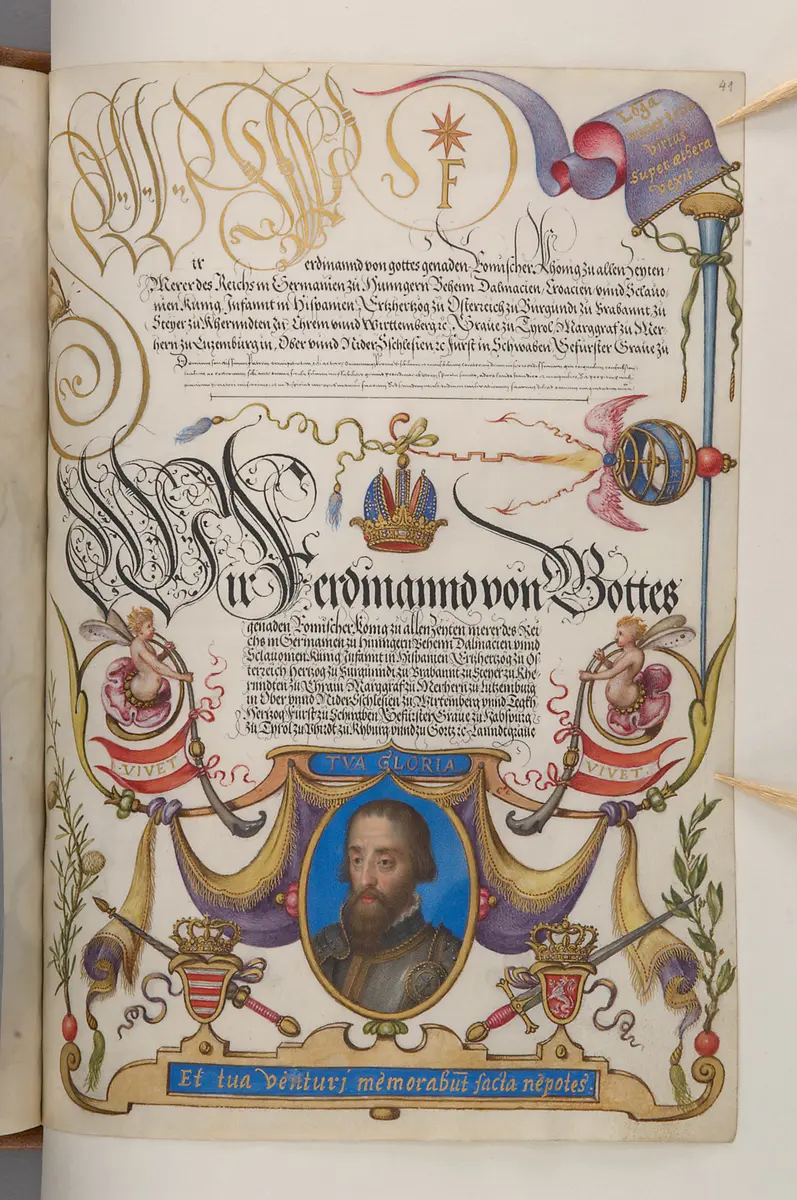 41
F
Virtus
Super æthera
Vexit
Wir Ferdinannd von gottes genaden Romischer Khönig zu allen Zeyten
Merer des Reichs in Germanien zu Hunngern Beheim Dalmacien, Croacien vnnd Sclauo-
nien Kunig, Infannt in Hispanien, Ertzhertzog zu Osterreich zu Burgundi zu Brabannt, zu
Steyer zu Kherndten zu Chrein vnnd Wirttemberg ꝛc, Graue zu Tyrol, Marggraf zu Mer-
hern zu Luzemburg in, Ober vnnd Nider Schlesien ꝛc Fürst in Schwaben Gefürster Graue zu
Wir Ferdinannd von Gottes
genaden Romischer Konig zu allen Zeyten merer des Rei
chs in Germanien zu Hunngern Beheim Dalmacien vnnd
Sclauonien Kunig Infannt in Hispanien Ertzhertzog zu Os
terreich Hertzog zu Burgundi zu Brabannt zu Steyer zu Khe
rnndten zu Chrain Marggraf zu Merhern zu Lutzemburg
in Ober vnnd Nider Schlesien zu Wirtemberg vnnd Teckh
Hertzog Fürst zu Schwaben Gefürster Graue zu Habspurg
zu Tyrol zu Phirdt zu Kyburg vnnd zu Görtz ꝛc Lanndtgraue
TVA GLORIA
VIVET
VIVET
Et tua venturi memorabūt facta nepotes.